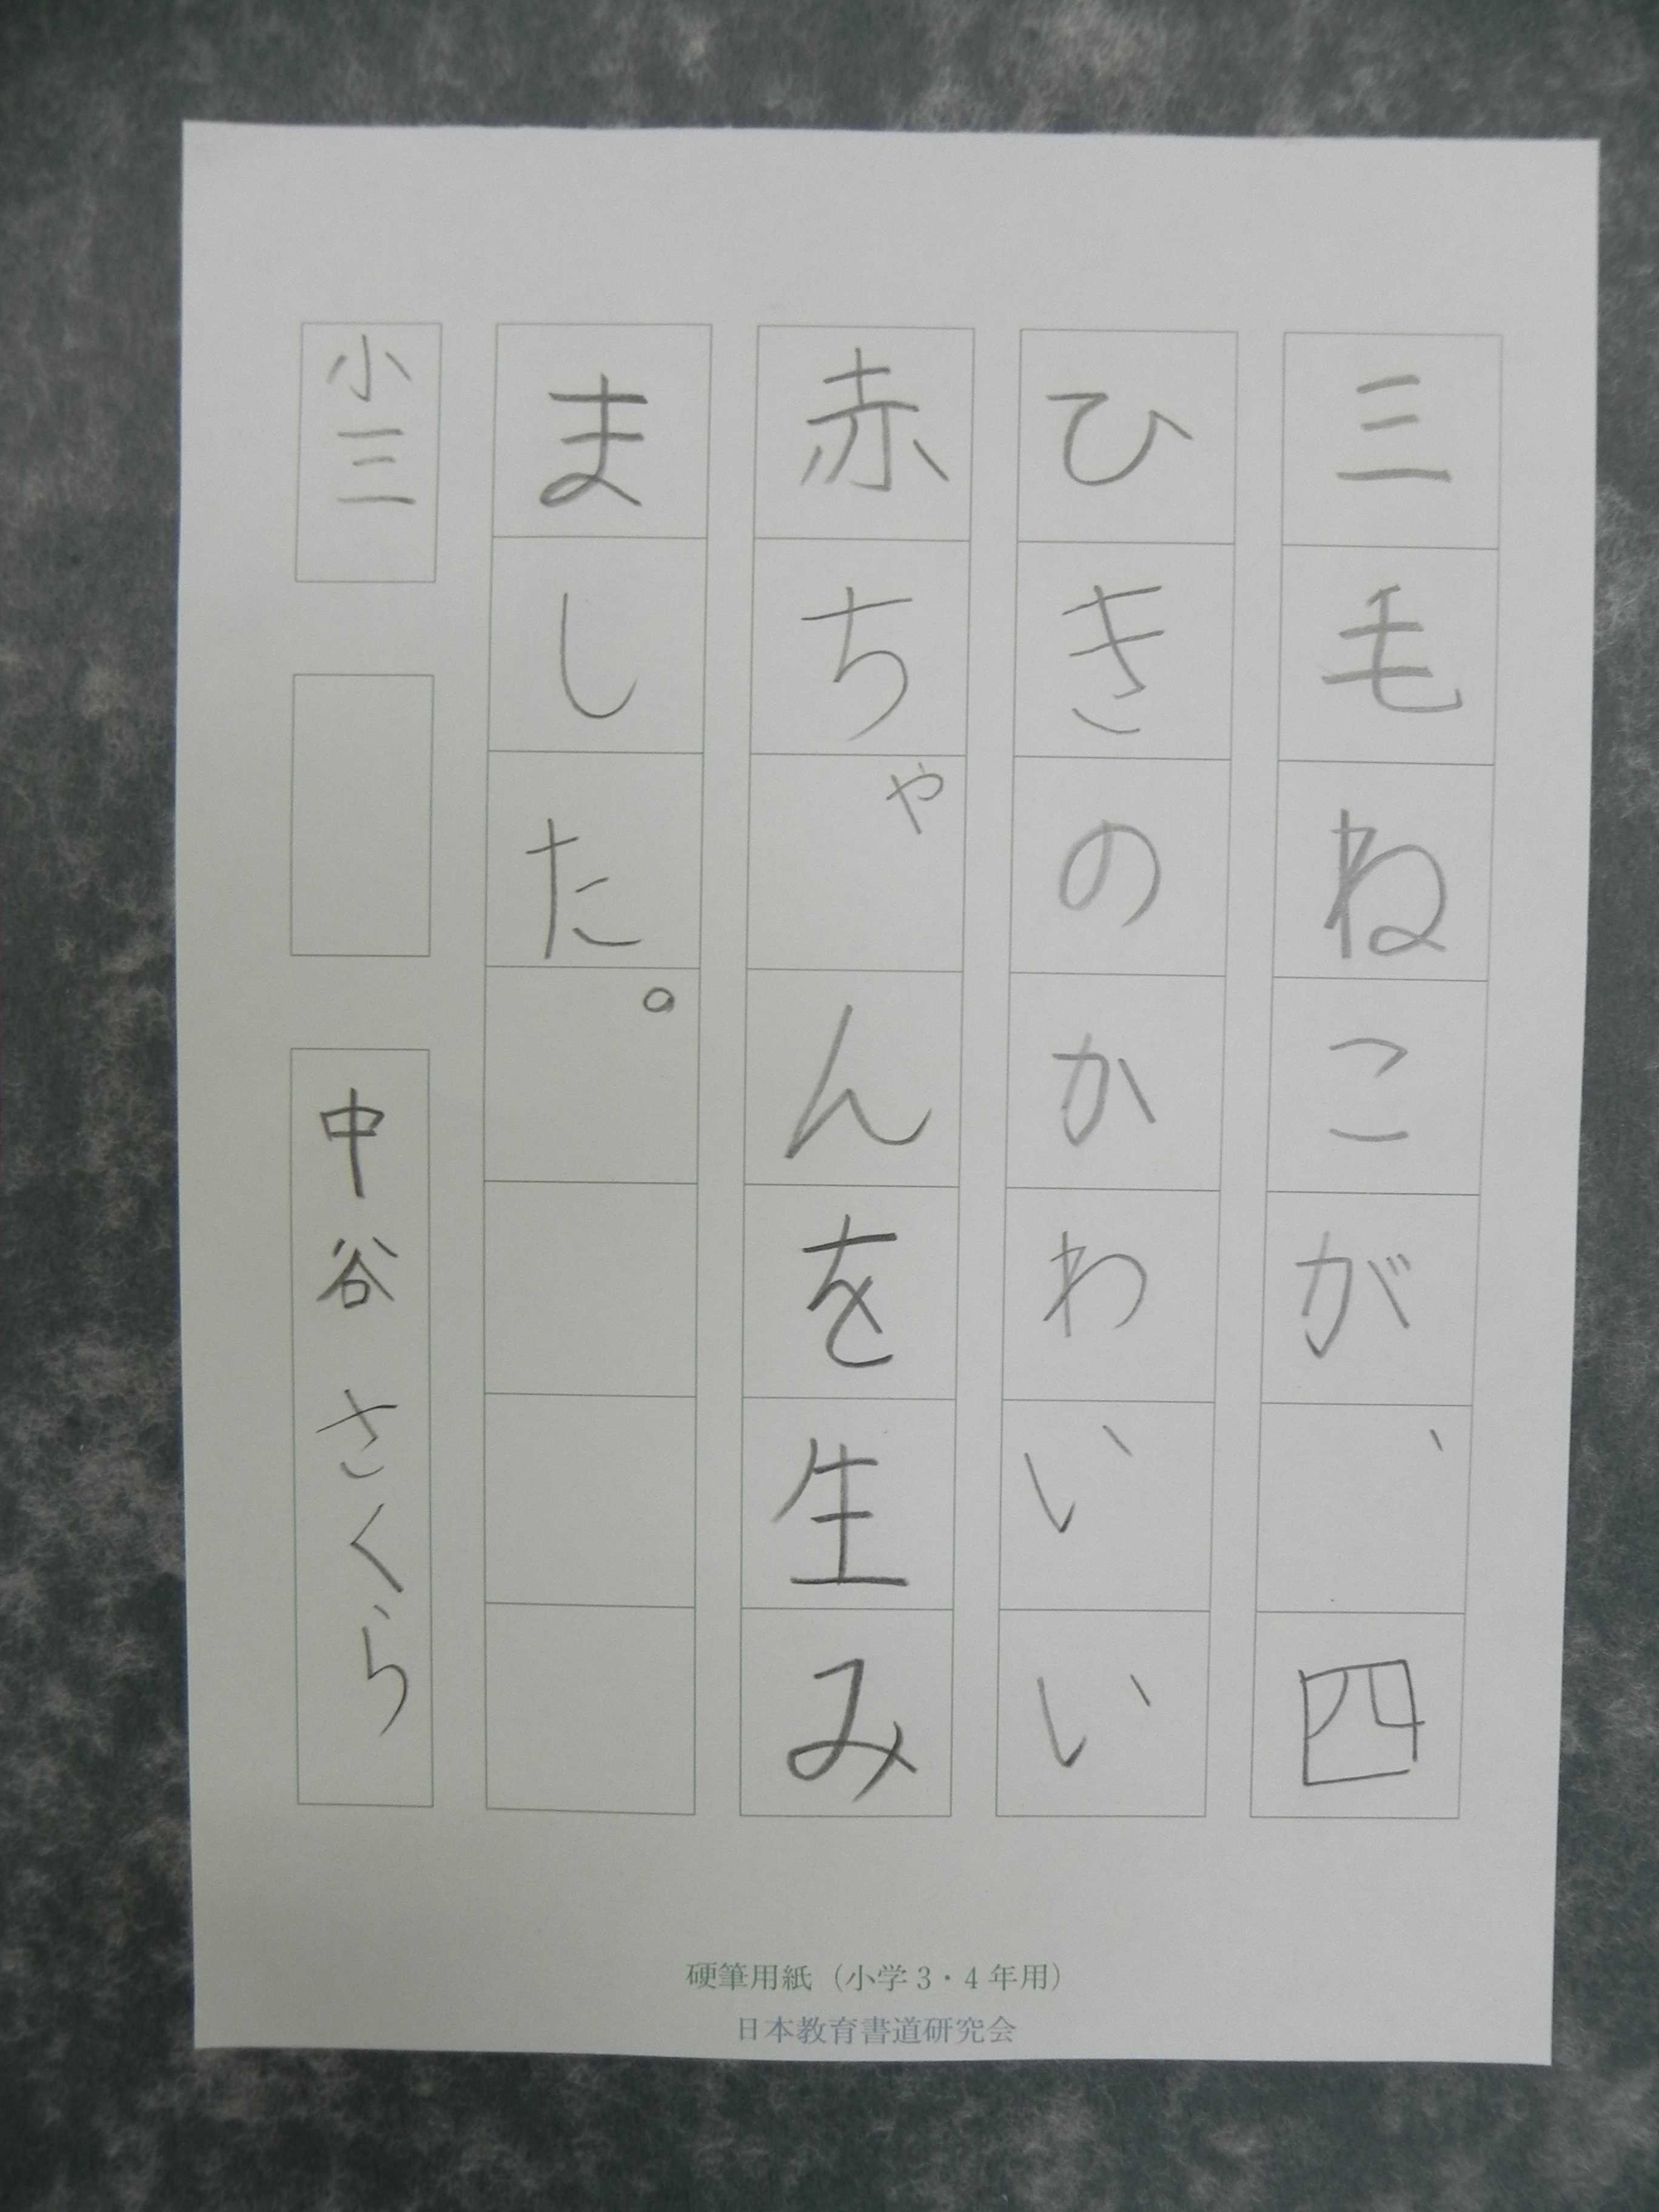 三毛ねこが、四
ひきのかわいい
赤ちゃんを生み
ました。
小三
中谷さくら
硬筆用紙（小学3・4年用）
日本教育書道研究会